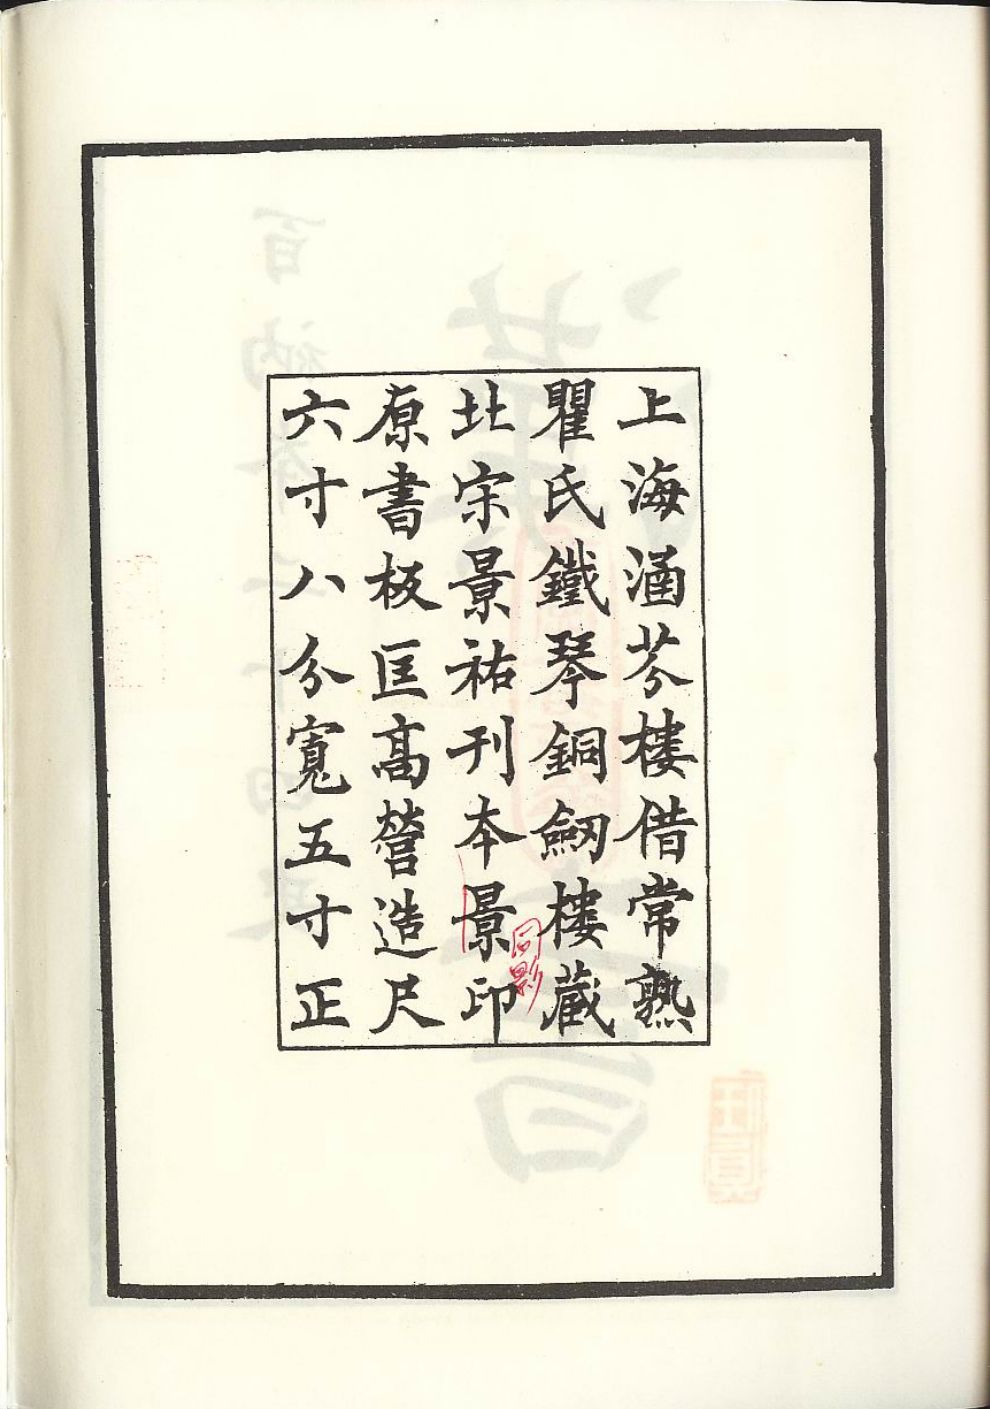 上海涵芬樓借常熟
瞿氏鐵琴銅劒樓藏
北宋景祐刊本景印
原書板匡高營造尺
六寸八分寬五寸正
同影